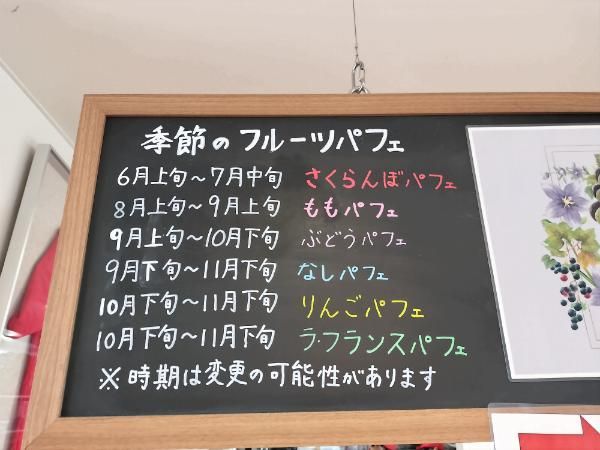 季節のフルーツパフェ
6月上旬～7月中旬 さくらんぼパフェ
8月上旬～9月上旬 ももパフェ
9月上旬～10月下旬 ぶどうパフェ
9月下旬～11月下旬 なしパフェ
10月下旬～11月下旬 りんごパフェ
10月下旬～11月下旬 ラ・フランスパフェ
※時期は変更の可能性があります